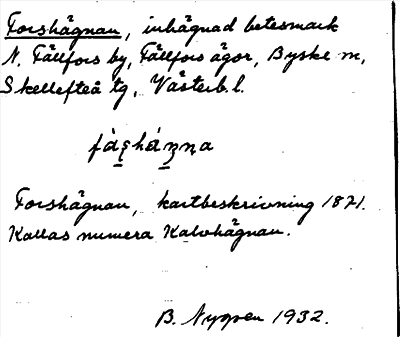 Forshägnan, inhägnad betesmark
N. Fällfors by, Fällfors ägor, Byske sn,
Skellefteå tg, Västerb. l.
Forshägnan, kartbeskrivning 1871.
Kallas numera Kalvhägnan.
B. Nygren 1932.